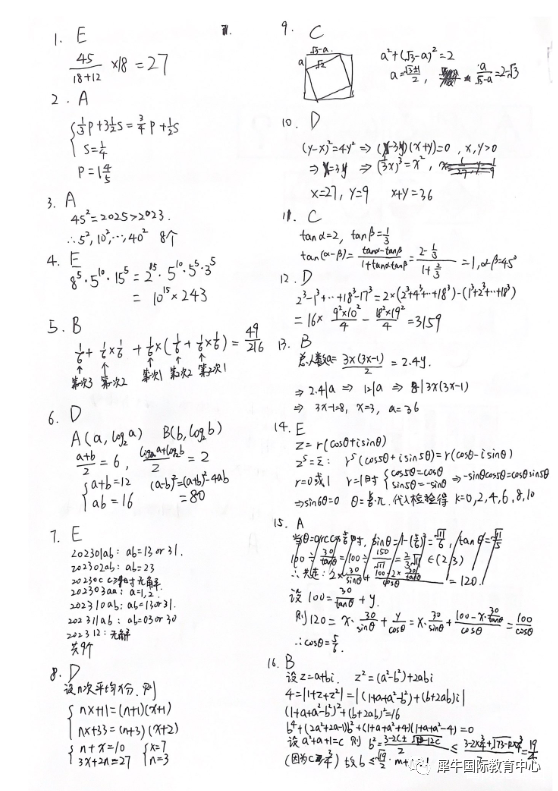 1. E
45/(18+12) ×18 = 27
2. A
{ 1/3 P + 3 1/2 S = 3/4 P + 1/2 S
S = 1/4
P = 1 4/5
3. A
45² = 2025 > 2023.
∴ 5², 10², …, 40² 8个
4. E
8⁵·5¹⁰·15⁵ = 2¹⁵·5¹⁰·5⁵·3⁵
= 10¹⁵ × 243
5. B
1/6 + 1/6 × 1/6 + 1/6 × (1/6 + 1/6 × 1/6) = 49/216
第一次3 第一次2 第一次1 第二次2 第二次1
6. D
A(a, log₂a) B(b, log₂b)
(a+b)/2 = 6, (log₂a+log₂b)/2 = 2
{ a+b = 12
ab = 16
(a-b)² = (a+b)² - 4ab
= 80
7. E
202301ab: ab = 13 or 31.
202302ab: ab = 23
202303aa: a = 1, 2.
202310ab: ab = 13 or 31.
202311ab: ab = 03 or 30
202312: 无解
共9个
8. D
设n次平均x分, 则
{ nx+11 = (n+1)(x+1)
nx+33 = (n+3)(x+2)
{ n+x = 10
3x+2n = 27
{ x = 7
n = 3
9. C
√3-a
a
√2
a²+(√3-a)² = 2
a/(√3-a) = 2-√3
10. D
(y-x)² = 4y² ⇒ (x-3y)(x+y) = 0, x, y > 0
⇒ x = 3y ⇒ (1/3 x)³ = x²,
x = 27, y = 9 x+y = 36
11. C
tanα = 2, tanβ = 1/3
tan(α-β) = (tanα-tanβ)/(1+tanαtanβ) = (2-1/3)/(1+2/3) = 1, α-β = 45°
12. D
2³-1³+…+18³-17³ = 2×(2³+4³+…+18³)-(1³+2³+…+18³)
= 16× 9²×10²/4 - 18²×19²/4 = 3159
13. B
总人数a = 3x(3x-1)/2 = 2.4y.
⇒ 2.4|a ⇒ 12|a ⇒ 8|3x(3x-1)
⇒ 3x-1=8, x = 3, a = 36
14. E
z = r(cosθ+isinθ)
z⁵ = z̄: r⁵(cos5θ+isin5θ) = r(cosθ-isinθ)
r=0或1 r=1时 { cos5θ = cosθ
sin5θ = -sinθ
⇒ -sinθcos5θ = cosθsin5θ
⇒ sin6θ = 0 θ = k/6·π. 代入检验得 k = 0, 2, 4, 6, 8, 10
15. A
设 100 = 30/tanθ + y.
则 120 = x·30/sinθ + y/cosθ = x·30/sinθ + (100-x·30/tanθ)/cosθ = 100/cosθ
∴ cosθ = 5/6.
16. B
设z = a+bi. z² = (a²-b²)+2abi
4 = |1+z+z²| = |(1+a+a²-b²)+(b+2ab)i|
(1+a+a²-b²)²+(b+2ab)² = 16
设 a²+a+1 = c 则
犀牛国际教育中心